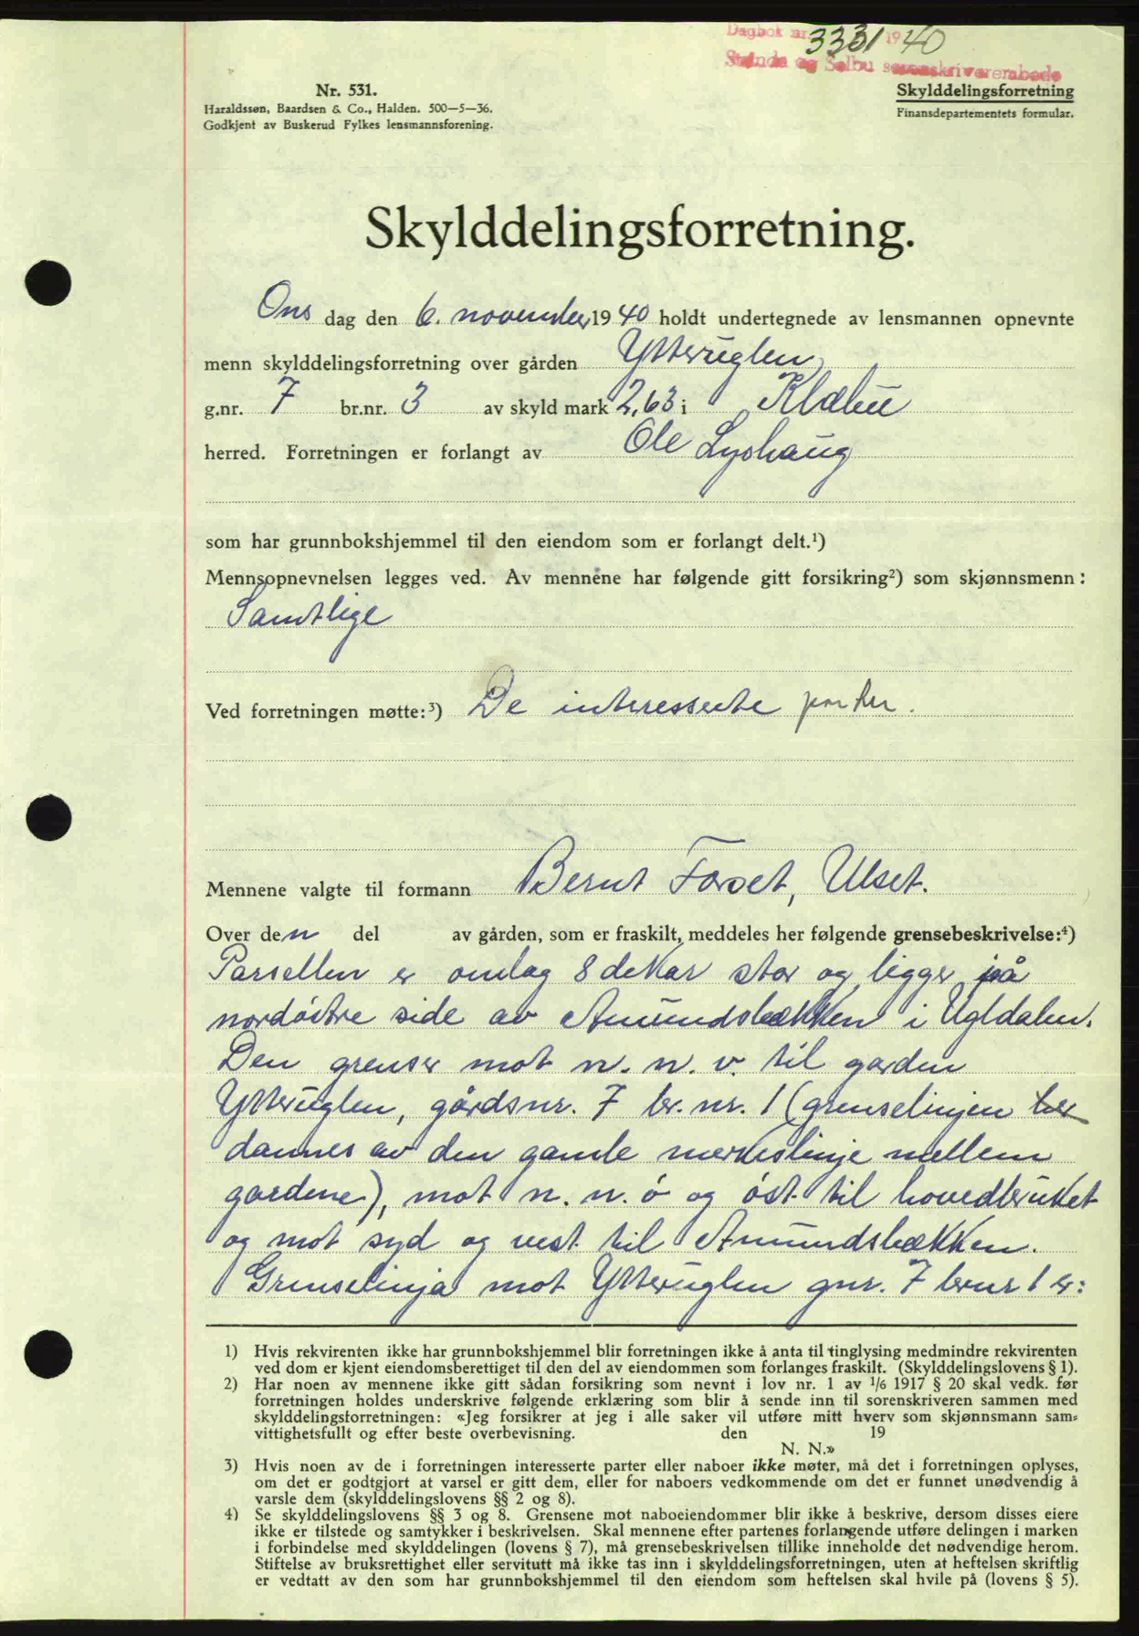 Dagbok nr. 3331 1940
Strinda og Selbu sorenskriverembede
Nr. 531.
Haraldssøn, Baardsen & Co., Halden. 500—5—36.
Godkjent av Buskerud Fylkes lensmannsforening.
Skylddelingsforretning
Finansdepartementets formular.
Skylddelingsforretning.
Ons dag den 6. november 1940 holdt undertegnede av lensmannen opnevnte
menn skylddelingsforretning over gården Ytteruglen
g.nr. 7 br.nr. 3 av skyld mark 2,63 i Klæbu
herred. Forretningen er forlangt av Ole Lyshaug
som har grunnbokshjemmel til den eiendom som er forlangt delt.¹)
Mennsopnevnelsen legges ved. Av mennene har følgende gitt forsikring²) som skjønnsmenn:
Samtlige
Ved forretningen møtte:³) De interesserte parter.
Mennene valgte til formann Bernt Forset, Ulset.
Over den del av gården, som er fraskilt, meddeles her følgende grensebeskrivelse:⁴)
Parsellen er omlag 8 dekar stor og ligger på
nordøstre side av Amundsbekken i Ugldalen.
Den grenser mot n. n. v. til garden
Ytteruglen, gårdsnr. 7 br. nr. 1 (grenselinjen
dannes av den gamle merkeslinje mellem
gardene), mot n. n. ø og øst til hovedbruket
og mot syd og vest til Amundsbækken.
Grenselinja mot Ytteruglen gnr. 7 brnr 1 er:
1) Hvis rekvirenten ikke har grunnbokshjemmel blir forretningen ikke å anta til tinglysing medmindre rekvirenten
ved dom er kjent eiendomsberettiget til den del av eiendommen som forlanges fraskilt. (Skylddelingslovens § 1).
2) Har noen av mennene ikke gitt sådan forsikring som nevnt i lov nr. 1 av 1/6 1917 § 20 skal vedk. før
forretningen holdes underskrive følgende erklæring som blir å sende inn til sorenskriveren sammen med
skylddelingsforretningen: «Jeg forsikrer at jeg i alle saker vil utføre mitt hverv som skjønnsmann sam-
vittighetsfullt og efter beste overbevisning. den 19
N. N.»
3) Hvis noen av de i forretningen interesserte parter eller naboer ikke møter, må det i forretningen oplyses,
om det er godtgjort at varsel er gitt dem, eller for naboers vedkommende om det er funnet unødvendig å
varsle dem (skylddelingslovens §§ 2 og 8).
4) Se skylddelingslovens §§ 3 og 8. Grensene mot naboeiendommer blir ikke å beskrive, dersom disses eiere
ikke er tilstede og samtykker i beskrivelsen. Skal mennene efter partenes forlangende utføre delingen i marken
i forbindelse med skylddelingen (lovens § 7), må grensebeskrivelsen tillike inneholde det nødvendige herom.
Stiftelse av bruksrettighet eller servitutt må ikke tas inn i skylddelingsforretningen, uten at heftelsen skriftlig
er vedtatt av den som har grunnbokshjemmel til den eiendom som heftelsen skal hvile på (lovens § 5).